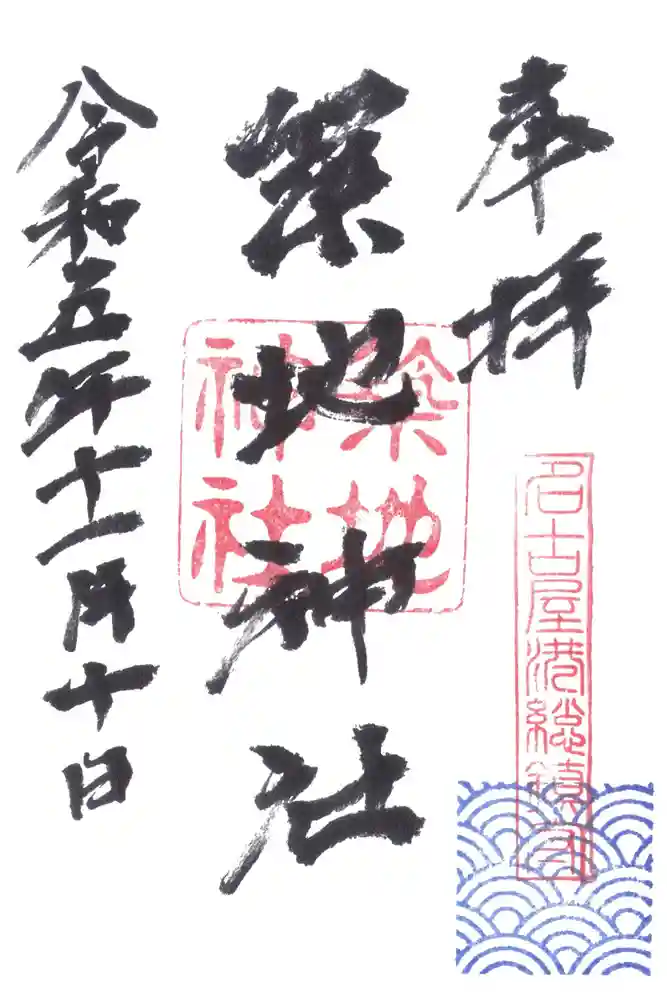 奉拝
名古屋港総鎮守
築地神社
築地神社
令和五年十一月十日